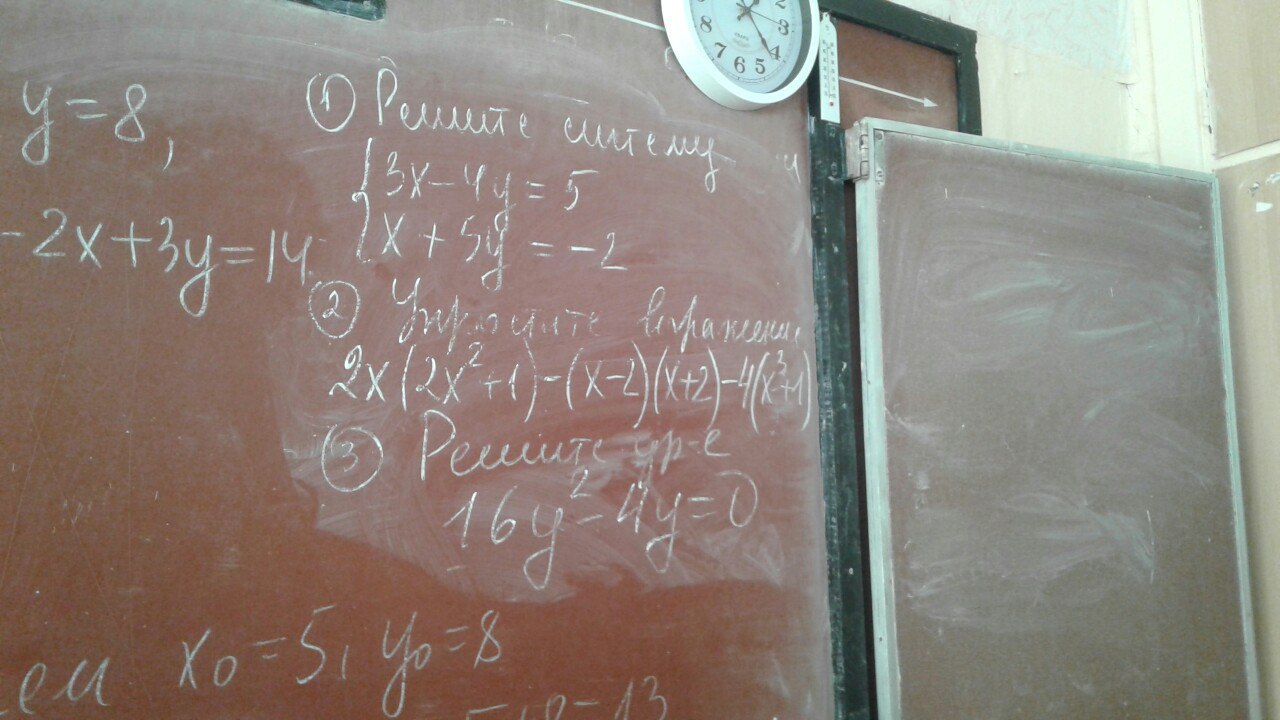 y=8,
-2x+3y=14
① Решите систему
{3x-4y=5
x+5y=-2
② Упростите выражени
2x(2x²+1)-(x-2)(x+2)-4(x³+1)
③ Решите ур-е
16y²-4y=0
ем x₀=5, y₀=8
5+8=13
2
3
4
5
6
7
8